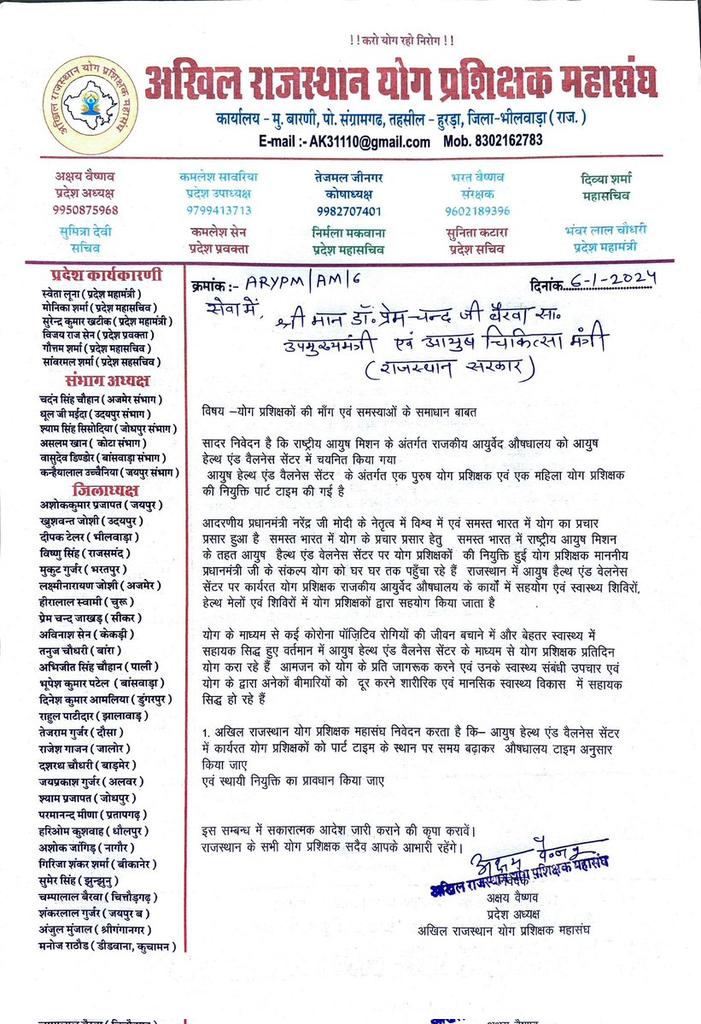 !! करो योग रहो निरोग !!
अखिल राजस्थान योग प्रशिक्षक महासंघ
अखिल राजस्थान योग प्रशिक्षक महासंघ
कार्यालय - मु. बारणी, पो. संग्रामगढ, तहसील - हुरड़ा, जिला-भीलवाड़ा ( राज. )
E-mail :- AK31110@gmail.com Mob. 8302162783
अक्षय वैष्णव
प्रदेश अध्यक्ष
9950875968
कमलेश सावरिया
प्रदेश उपाध्यक्ष
9799413713
तेजमल जीनगर
कोषाध्यक्ष
9982707401
भरत वैष्णव
संरक्षक
9602189396
दिव्या शर्मा
महासचिव
सुमित्रा देवी
सचिव
कमलेश सेन
प्रदेश प्रवक्ता
निर्मला मकवाना
प्रदेश महासचिव
सुनिता कटारा
प्रदेश सचिव
भंवर लाल चौधरी
प्रदेश महामंत्री
प्रदेश कार्यकारणी
स्वेता लूना ( प्रदेश महामंत्री )
मोनिका शर्मा ( प्रदेश महासचिव )
सुरेन्द्र कुमार खटीक ( प्रदेश महामंत्री )
विजय राज सेन ( प्रदेश प्रवक्ता )
गौत्तम शर्मा ( प्रदेश महासचिव )
सांवरमल शर्मा ( प्रदेश सहसचिव )
संभाग अध्यक्ष
चदंन सिंह चौहान ( अजमेर संभाग )
धूल जी मईदा ( उदयपुर संभाग )
श्याम सिंह सिसोदिया ( जोधपुर संभाग )
असलम खान ( कोटा संभाग )
वासुदेव डिण्डोर ( बांसवाड़ा संभाग )
कन्हैयालाल उच्चैनिया ( जयपुर संभाग )
जिलाध्यक्ष
अशोककुमार प्रजापत ( जयपुर )
खुशवन्त जोशी ( उदयपुर )
दीपक टेलर ( भीलवाड़ा )
विष्णु सिंह ( राजसमंद )
मुकुट गुर्जर ( भरतपुर )
लक्ष्मीनारायण जोशी ( अजमेर )
हीरालाल स्वामी ( चुरू )
प्रेम चन्द जाखड़ ( सीकर )
अविनाश सेन ( केकड़ी )
तनुज चौधरी ( बांरा )
अभिजीत सिंह चौहान ( पाली )
भूपेश कुमार पटेल ( बांसवाड़ा )
दिनेश कुमार आमलिया ( डुंगरपुर )
राहुल पाटीदार ( झालावाड़ )
तेजराम गुर्जर ( दौसा )
राजेश गाजन ( जालोर )
दशरथ चौधरी ( बाड़मेर )
जयप्रकाश गुर्जर ( अलवर )
श्याम प्रजापत ( जोधपुर )
परमानन्द मीणा ( प्रतापगढ़ )
हरिओम कुशवाह ( धौलपुर )
अशोक जांगिड़ ( नागौर )
गिरिजा शंकर शर्मा ( बीकानेर )
सुमेर सिंह ( झुन्झुनु )
चम्पालाल बैरवा ( चित्तौड़गढ़ )
शंकरलाल गुर्जर ( जयपुर ब )
अंजुल मुंजाल ( श्रीगंगानगर )
मनोज राठौड ( डीडवाना, कुचामन )
क्रमांक :- ARYPM/AM/6 दिनांक 6-1-2024
सेवा में,
श्री मान डॉ. प्रेम-चन्द जी बैरवा सा.
उपमुख्यमंत्री एवं आयुष चिकित्सा मंत्री
(राजस्थान सरकार)
विषय –योग प्रशिक्षकों की माँग एवं समस्याओं के समाधान बाबत
सादर निवेदन है कि राष्ट्रीय आयुष मिशन के अंतर्गत राजकीय आयुर्वेद औषधालय को आयुष
हेल्थ एंड वैलनेस सेंटर में चयनित किया गया
आयुष हेल्थ एंड वैलनेस सेंटर के अंतर्गत एक पुरुष योग प्रशिक्षक एवं एक महिला योग प्रशिक्षक
की नियुक्ति पार्ट टाइम की गई है
आदरणीय प्रधानमंत्री नरेंद्र जी मोदी के नेतृत्व में विश्व में एवं समस्त भारत में योग का प्रचार
प्रसार हुआ है समस्त भारत में योग के प्रचार प्रसार हेतु समस्त भारत में राष्ट्रीय आयुष मिशन
के तहत आयुष हैल्थ एंड वेलनेस सेंटर पर योग प्रशिक्षकों की नियुक्ति हुई योग प्रशिक्षक माननीय
प्रधानमंत्री जी के संकल्प योग को घर घर तक पहुँचा रहे हैं राजस्थान में आयुष हैल्थ एंड वेलनेस
सेंटर पर कार्यरत योग प्रशिक्षक राजकीय आयुर्वेद औषधालय के कार्यों में सहयोग एवं स्वास्थ्य शिविरों,
हेल्थ मेलों एवं शिविरों में योग प्रशिक्षकों द्वारा सहयोग किया जाता है
योग के माध्यम से कई कोरोना पॉज़िटिव रोगियों की जीवन बचाने में और बेहतर स्वास्थ्य में
सहायक सिद्ध हुए वर्तमान में आयुष हेल्थ एंड वैलनेस सेंटर के माध्यम से योग प्रशिक्षक प्रतिदिन
योग करा रहे हैं आमजन को योग के प्रति जागरूक करने एवं उनके स्वास्थ्य संबंधी उपचार एवं
योग के द्वारा अनेकों बीमारियों को दूर करने शारीरिक एवं मानसिक स्वास्थ्य विकास में सहायक
सिद्ध हो रहे हैं
1. अखिल राजस्थान योग प्रशिक्षक महासंघ निवेदन करता है कि– आयुष हेल्थ एंड वैलनेस सेंटर
में कार्यरत योग प्रशिक्षकों को पार्ट टाइम के स्थान पर समय बढ़ाकर औषधालय टाइम अनुसार
किया जाए
एवं स्थायी नियुक्ति का प्रावधान किया जाए
इस सम्बन्ध में सकारात्मक आदेश जारी कराने की कृपा करावें।
राजस्थान के सभी योग प्रशिक्षक सदैव आपके आभारी रहेंगे।
अखिल राजस्थान योग प्रशिक्षक महासंघ
अक्षय वैष्णव
प्रदेश अध्यक्ष
अखिल राजस्थान योग प्रशिक्षक महासंघ